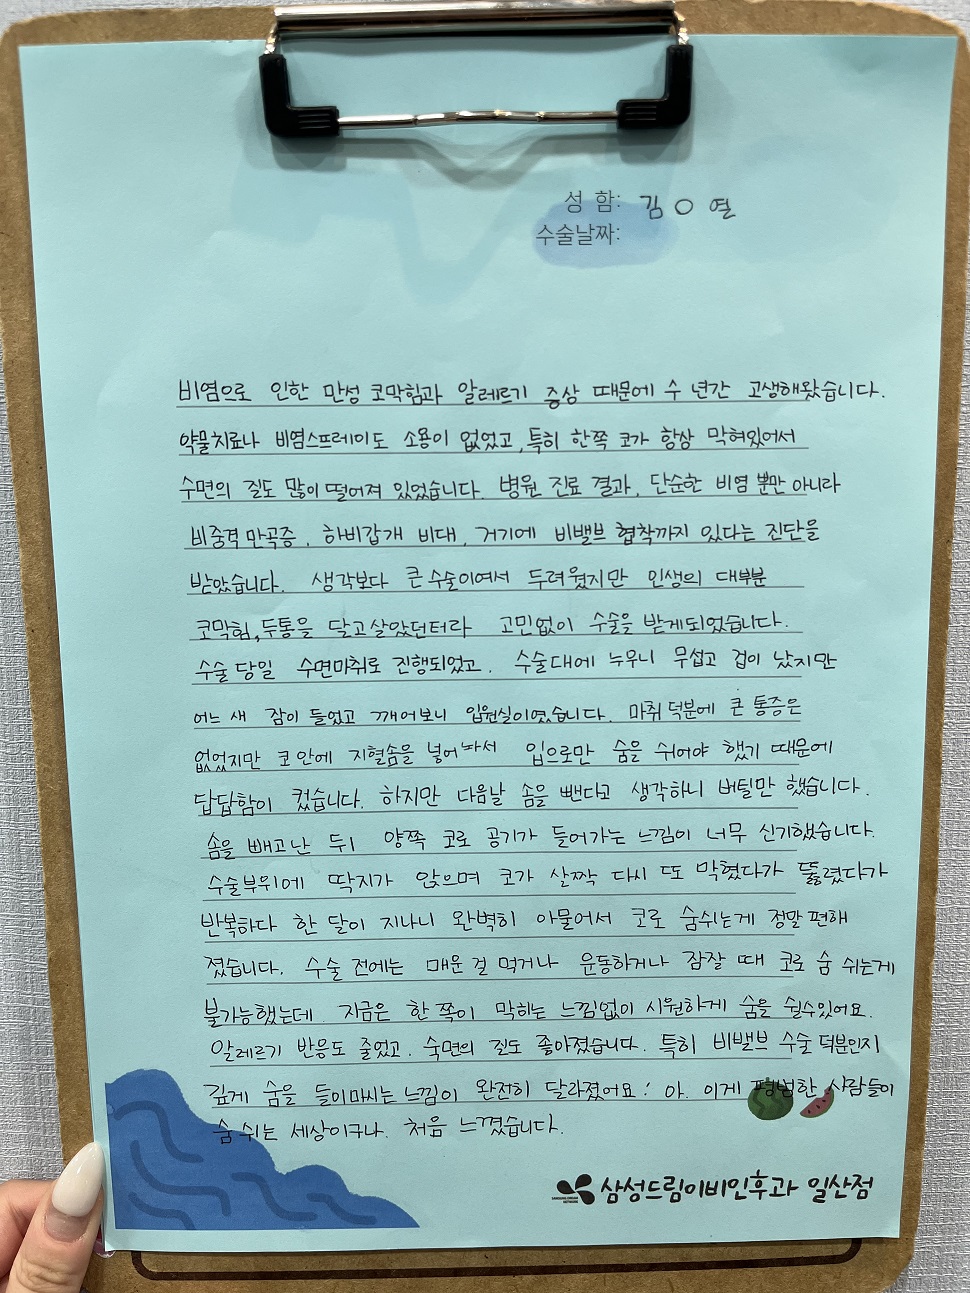 성 함: 김 O 열
수술날짜:
비염으로 인한 만성 코막힘과 알레르기 증상 때문에 수 년간 고생해왔습니다.
약물치료나 비염스프레이도 소용이 없었고, 특히 한쪽 코가 항상 막혀있어서
수면의 질도 많이 떨어져 있었습니다. 병원 진료 결과, 단순한 비염 뿐만 아니라
비중격 만곡증, 하비갑개 비대, 거기에 비밸브 협착까지 있다는 진단을
받았습니다. 생각보다 큰 수술이여서 두려웠지만 인생의 대부분
코막힘, 두통을 달고살았던터라 고민없이 수술을 받게되었습니다.
수술 당일 수면마취로 진행되었고, 수술대에 누우니 무섭고 겁이 났지만
어느 새 잠이 들었고 깨어보니 입원실이였습니다. 마취 덕분에 큰 통증은
없었지만 코 안에 지혈솜을 넣어놔서 입으로만 숨을 쉬어야 했기 때문에
답답함이 컸습니다. 하지만 다음날 솜을 뺀다고 생각하니 버틸만 했습니다.
솜을 빼고난 뒤 양쪽 코로 공기가 들어가는 느낌이 너무 신기했습니다.
수술부위에 딱지가 앉으며 코가 살짝 다시 또 막혔다가 뚫렸다가
반복하다 한 달이 지나니 완벽히 아물어서 코로 숨쉬는게 정말 편해
졌습니다. 수술 전에는 매운 걸 먹거나 운동하거나 잠잘 때 코로 숨 쉬는게
불가능했는데 지금은 한 쪽이 막히는 느낌없이 시원하게 숨을 쉴수있어요.
알레르기 반응도 줄었고, 숙면의 질도 좋아졌습니다. 특히 비밸브 수술 덕분인지
깊게 숨을 들이마시는 느낌이 완전히 달라졌어요! 아. 이게 평범한 사람들이
숨 쉬는 세상이구나. 처음 느꼈습니다.
삼성드림이비인후과 일산점